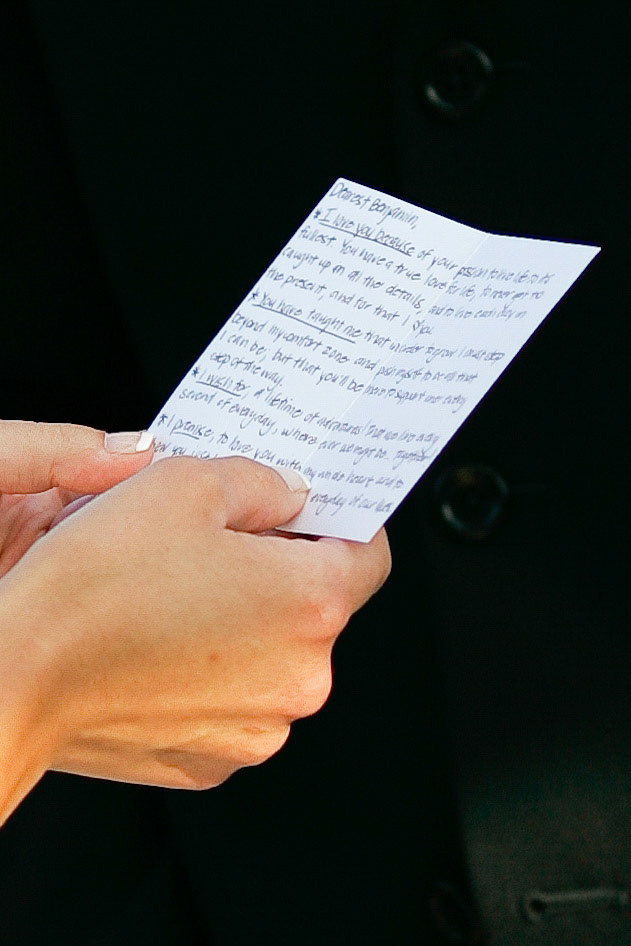 Dearest Benjamin,
* I love you because of your passion to live life to its
fullest. You have a true love for life, to never get too
caught up in all the details, and to live each day in
the present, and for that I you.
* You have taught me that in order to grow I must step
beyond my comfort zone and push myself to be all that
I can be; but that you'll be there to support me every
step of the way.
* I wish for, a lifetime of adventures! That we live every
second of everyday, where ever we might be, together!
* I promise, to love you with my whole heart and to
you everyday of our lives.